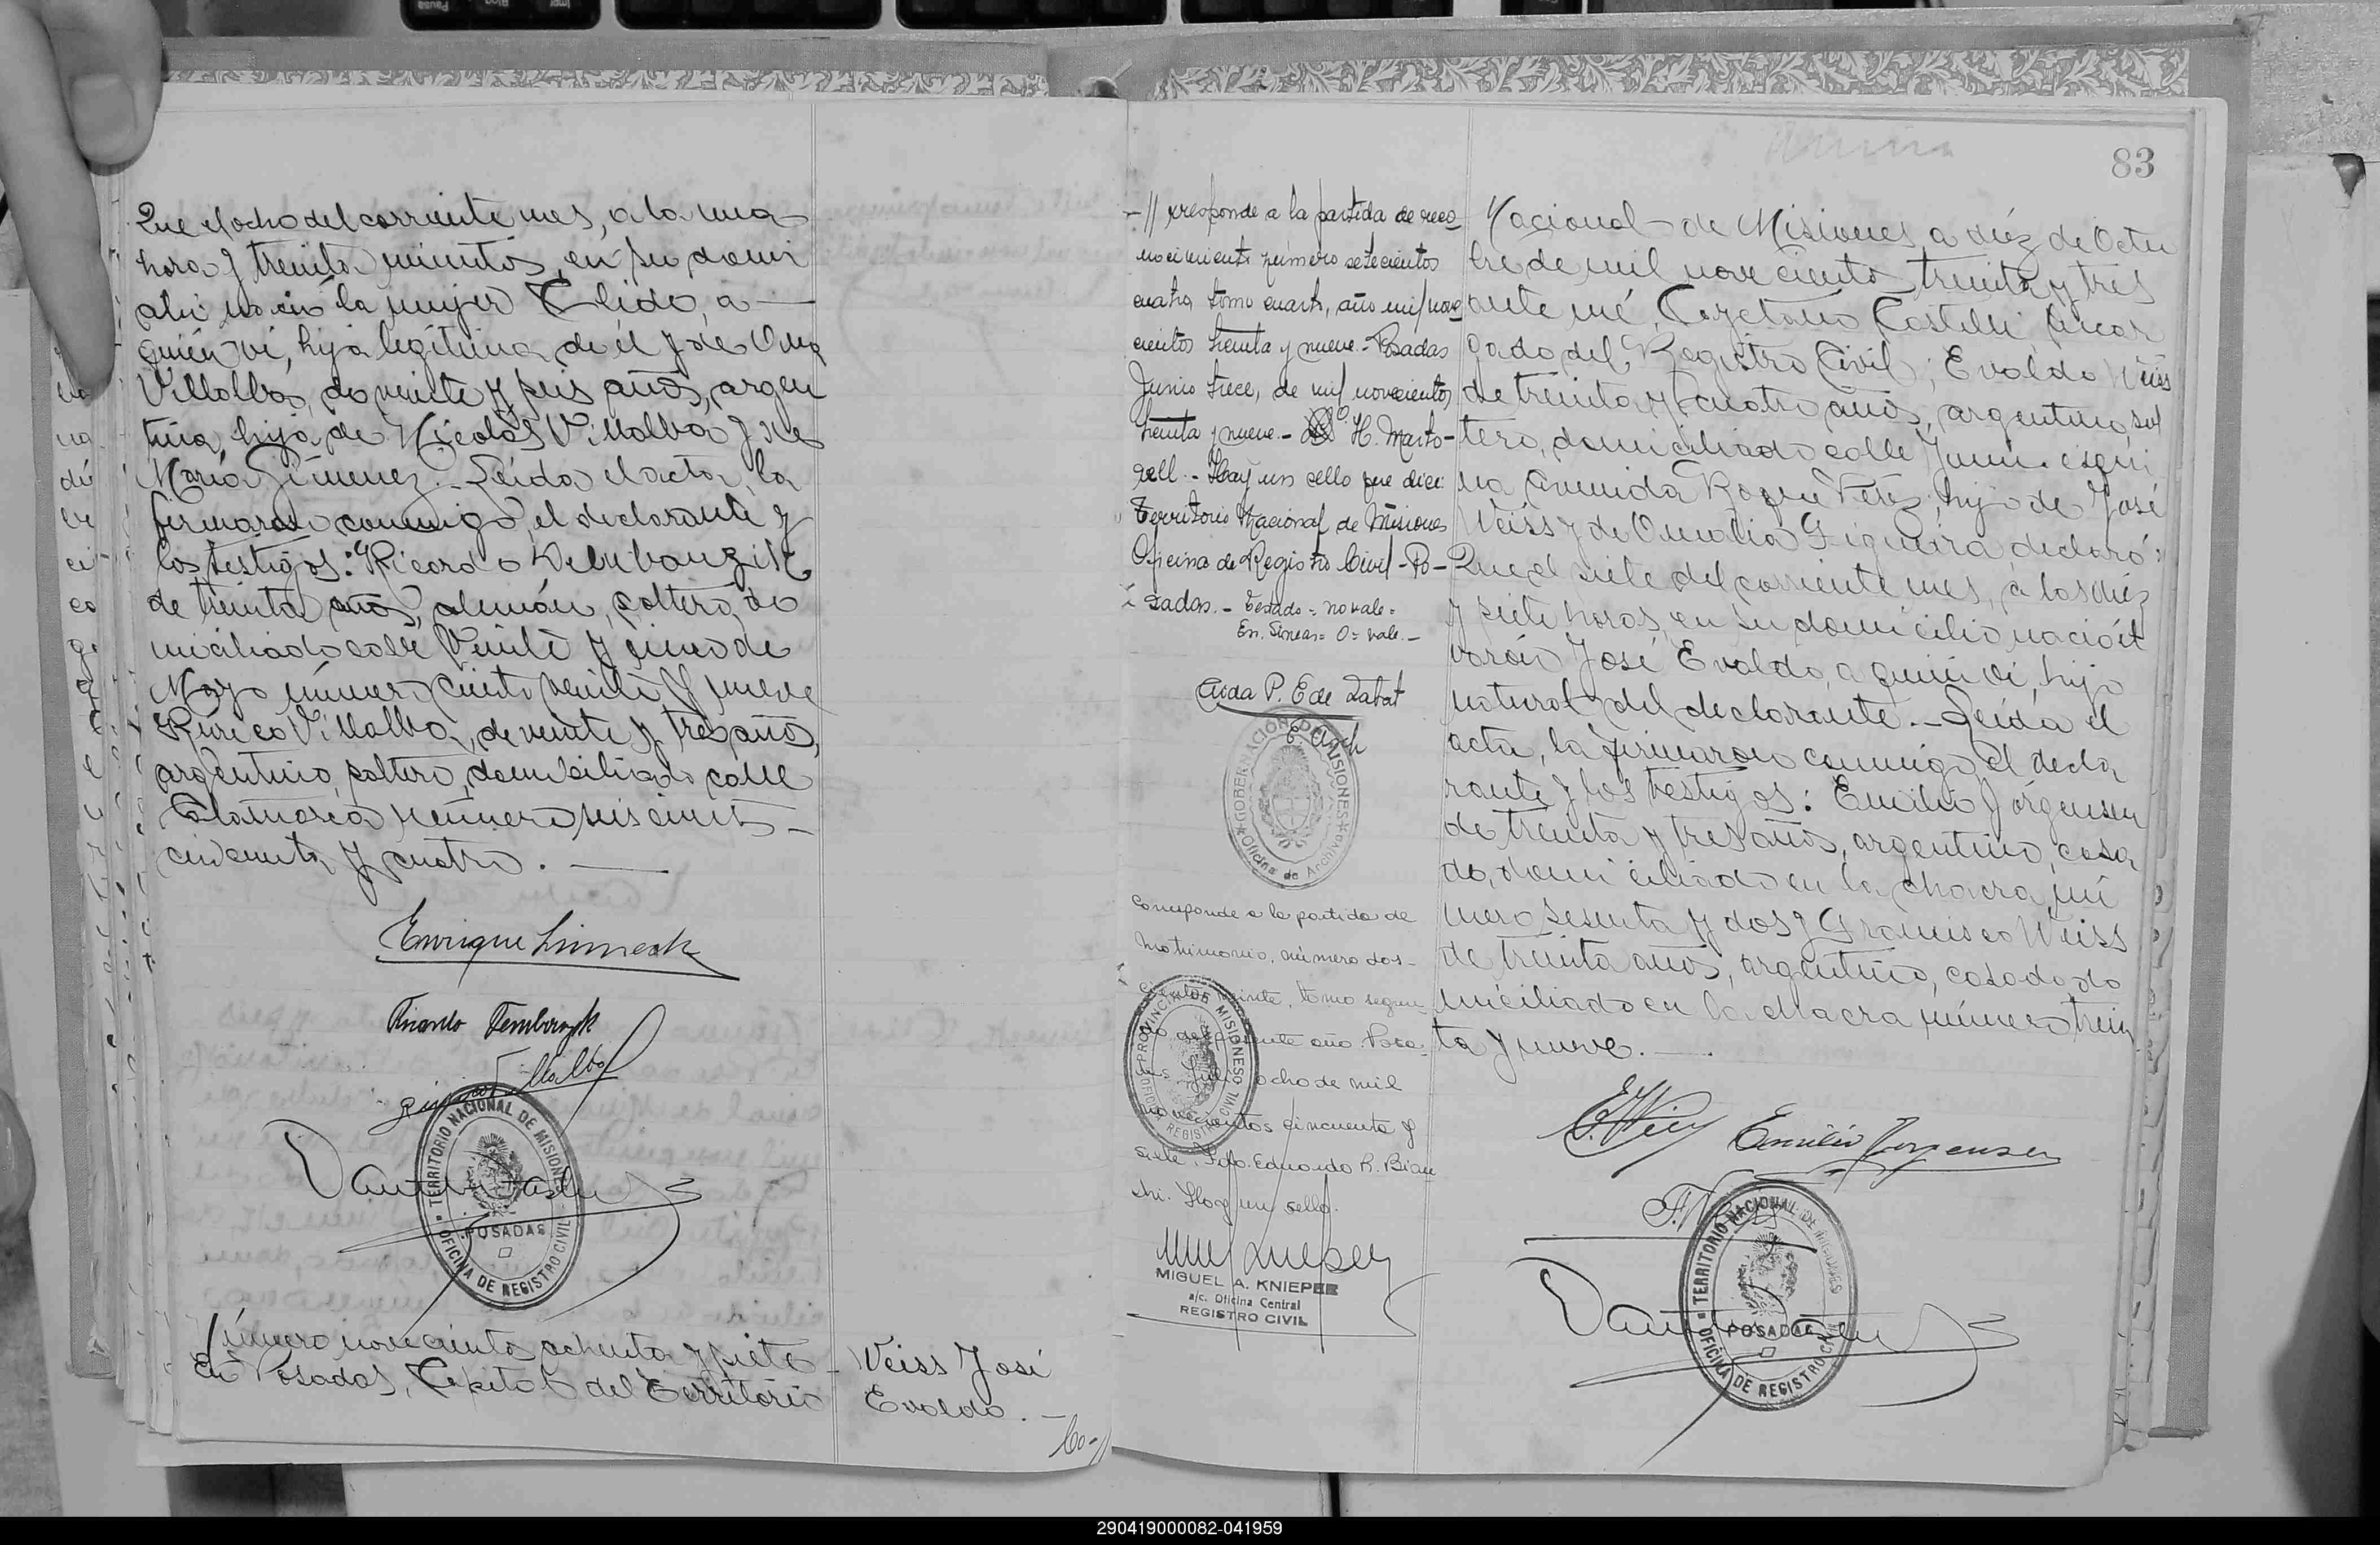 Que el ocho del corriente mes, a la una
hora y treinta minutos, en su domi
cilio nació la mujer Elida, a
quién vi, hija legítima de él y de Ana
Villalba, de veinte y seis años, argen
tina, hija de Nicolás Villalba y de
María Gimenez.- Leída el acta, la
firmaron conmigo, el declarante y
los testigos: Ricardo
de treinta años, alemán, soltero, do
miciliado calle Veinte y cinco de
Mayo número ciento veinte y nueve
Villalba, de veinte y tres años,
argentino, soltero, domiciliado calle
número seiscientos
cincuenta y cuatro.
Enrique
Ricardo
Villalba
TERRITORIO NACIONAL DE MISIONES
POSADAS
OFICINA DE REGISTRO CIVIL
Número novecientos ochenta y siete
En Posadas, Capital del Territorio
Weiss José
Evaldo.-
Co-//
83
-//rresponde a la partida de reco-
nocimiento número setecientos
cuatro, tomo cuarto, año mil nove
cientos treinta y nueve.- Posadas
Junio trece, de mil novecientos
treinta y nueve.- H. Marto-
rell.- Hay un sello que dice:
Territorio Nacional de Misiones
Oficina de Registro Civil - Po-
sadas.- Testado = no vale =
En. líneas = O = vale.-
Aida P. E de Labat
GOBERNACIÓN DE MISIONES
Oficina de Archivo
Corresponde a la partida de
Matrimonio, número dos-
cientos veinte, tomo segun
do del presente año. Posa-
das Julio ocho de mil
novecientos cincuenta y
siete. Fdo. Eduardo R. Bian
chi. Hay un sello.
PROVINCIA DE MISIONES
REGISTRO CIVIL
MIGUEL A. KNIEPER
a/c. Oficina Central
REGISTRO CIVIL
Nacional de Misiones a diéz de Octu
bre de mil novecientos treinta y tres
ante mé, Cayetano Castelli, Encar
gado del Registro Civil, Evaldo Weiss
de treinta y cuatro años, argentino, sol
tero, domiciliado calle Junín esqui
na Avenida Roque Perez, hijo de José
Weiss y de Amalia Sigueira declaró:
Que el siete del corriente mes, a las diéz
y siete horas, en su domicilio nació el
varón José Evaldo, a quién vi, hijo
natural del declarante.- Leída el
acta, la firmaron conmigo el decla
rante y los testigos: Emilio Jorgensen
de treinta y tres años, argentino, casa
do, domiciliado en la chacra nú
mero sesenta y dos y Francisco Weiss
de treinta años, argentino, casado do
miciliado en la chacra número trein
ta y nueve.-
E. Weiss
Emilio Jorgensen
F. Weiss
TERRITORIO NACIONAL DE MISIONES
POSADAS
OFICINA DE REGISTRO CIVIL
290419000082-041959